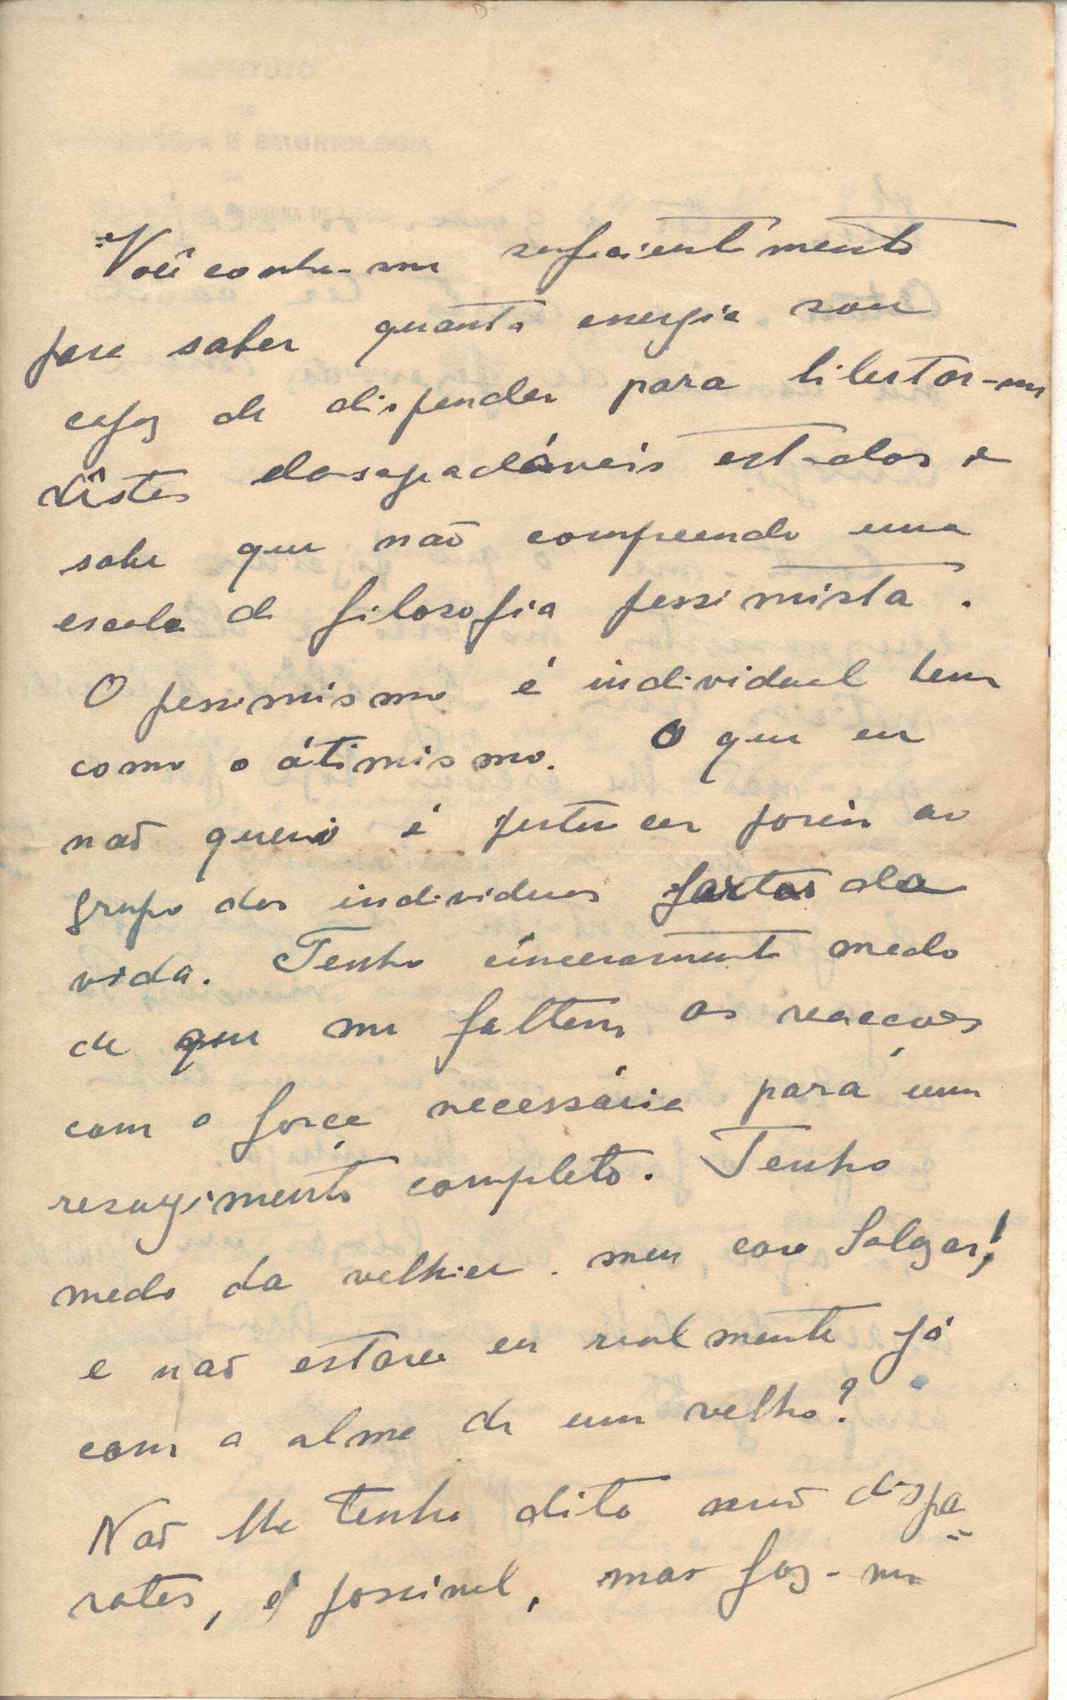 Você conhece-me suficientemente
para saber quanta energia sou
capaz de dispender para libertar-me
dêstes desagradáveis estados e
sabe que não compreendo uma
escola de filosofia pessimista.
O pessimismo é individual bem
como o ótimismo. O que eu
não quero é pertencer porém ao
grupo dos individuos fartos da
vida. Tenho sinceramente medo
de que me faltem as reacções
com a força necessária para um
resurgimento completo. Tenho
medo da velhice, meu caro Salazar!
e não estarei eu realmente já
com a alma de um velho?
Não lhe tenho dito senão dispa=
rates, é possivel, mas faz-me